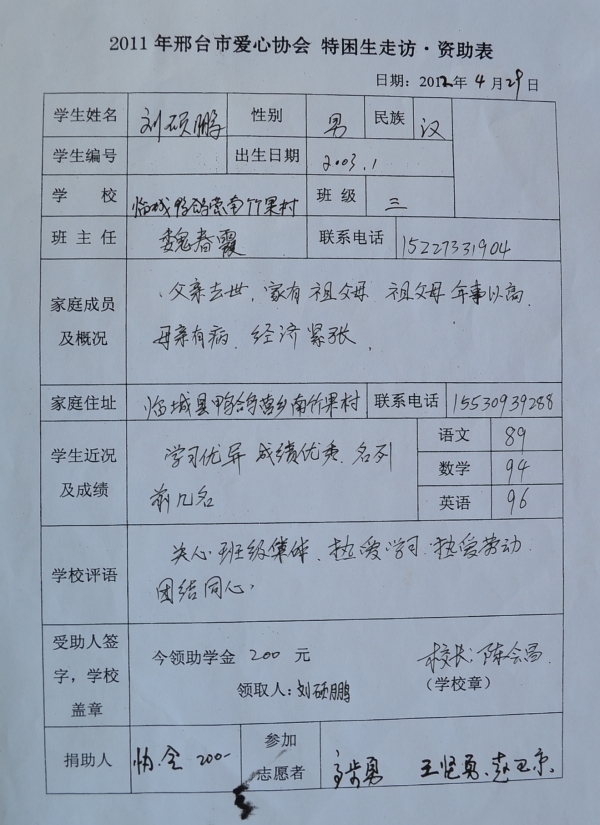 2011年邢台市爱心协会 特困生走访·资助表
日期：2012年4月29日
学生姓名 刘硕鹏 性别 男 民族 汉
学生编号 出生日期 2003.1
学 校 临城鸭鸽营南竹果村 班 级 三
班 主 任 魏春霞 联系电话 15227331904
家庭成员 父亲去世，家有祖父母，祖父母年事以高，
及概况 母亲有病、经济紧张
家庭住址 临城县鸭鸽营乡南竹果村 联系电话 15530939288
学生近况 学习优异 成绩优秀、名列 语文 89
及成绩 前几名 数学 94
英语 96
学校评语 关心班级集体、热爱学习、热爱劳动
团结同心。
受助人签 今领助学金 200 元 校长：陈会昌
字，学校 领取人：刘硕鹏 （学校章）
盖章
捐助人 200- 参加
志愿者 王坚勇、赵卫京